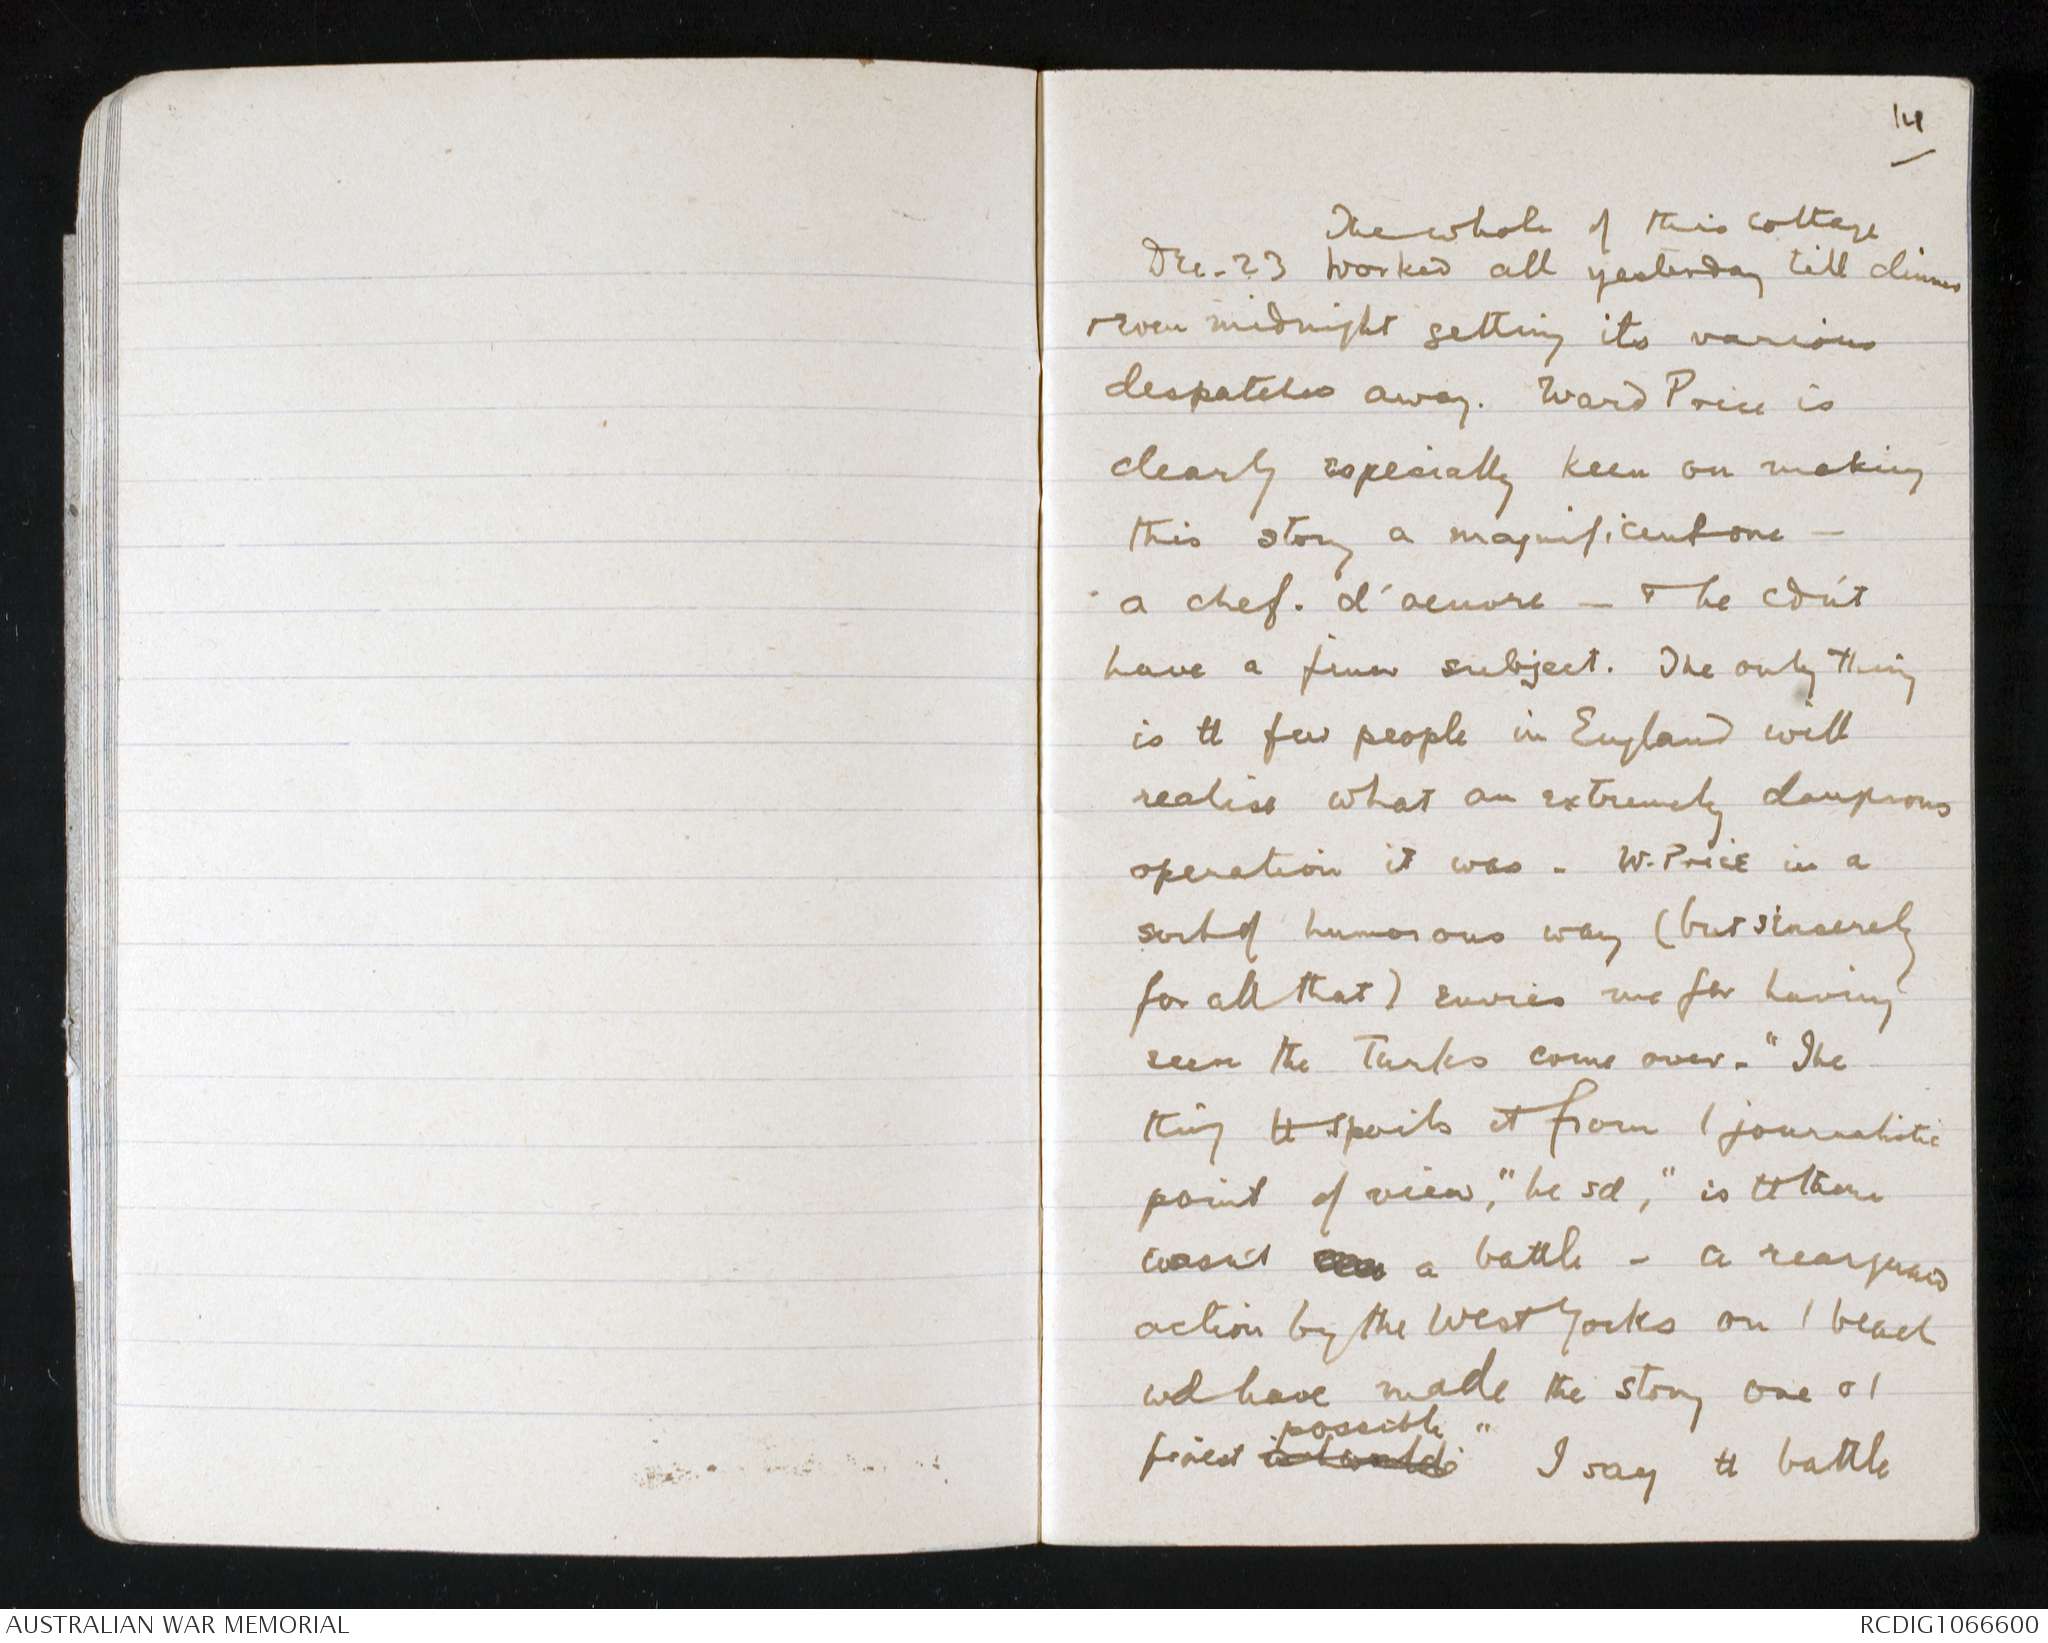 14
The whole of this cottage
Dec. 23 worked all yesterday till dinner
& even midnight getting its various
despatches away. Ward Price is
clearly especially keen on making
this story a magnificent one -
a chef. d'oeuvre - & he cdn't
have a finer subject. The only thing
is tt few people in England will
realise what an extremely dangerous
operation it was. W. Price in a
sort of humorous way (but sincerely
for all that) envies me for having
seen the Turks come over. "The
thing tt spoils it from / journalistic
point of view," he sd, "is tt there
wasn't a battle - a rearguard
action by the West Yorks on / beach
wd have made the story one o /
possible "
finest in / world. I say tt battle
AUSTRALIAN WAR MEMORIAL
RCDIG1066600